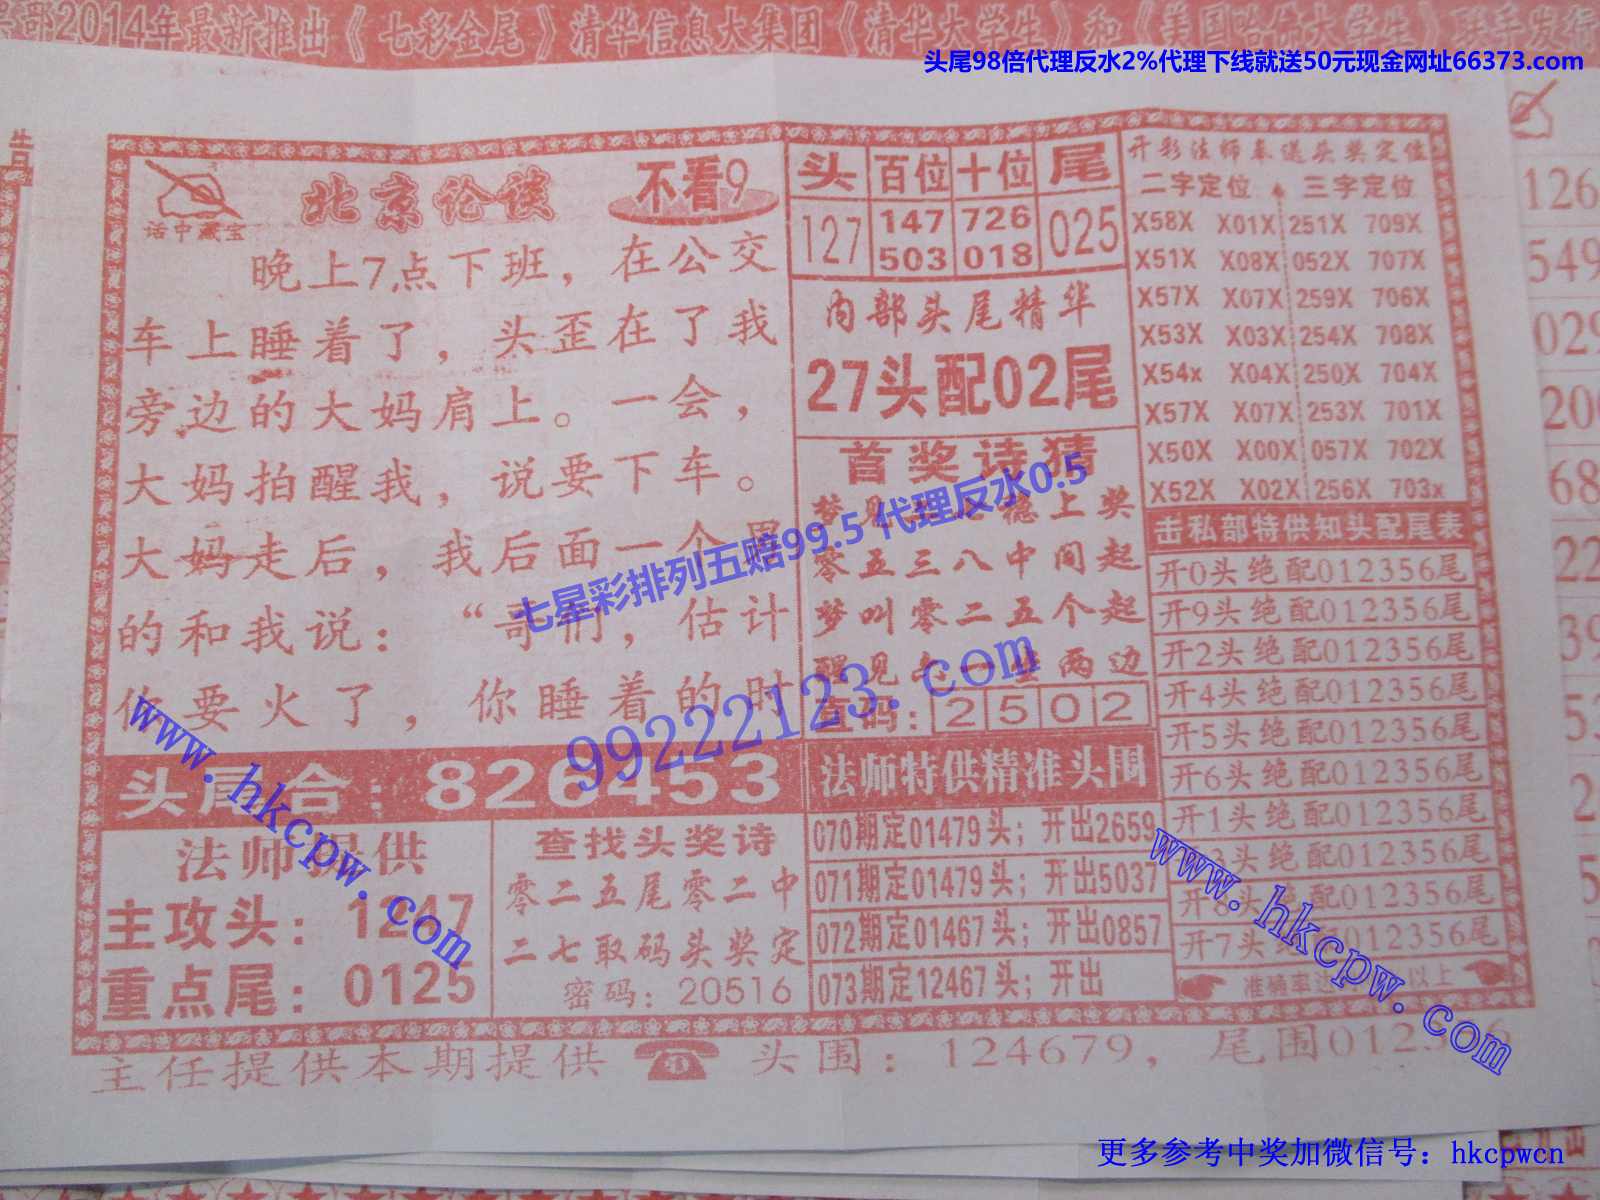 部2014年最新推出《七彩金尾》清华信息大集团《清华大学生》和《美国哈佛大学生》联手发行
头尾98倍代理反水2%代理下线就送50元现金网址66373.com
告
话中藏宝
北京论谈
不看9
晚上7点下班，在公交
车上睡着了，头歪在了我
旁边的大妈肩上。一会，
大妈拍醒我，说要下车。
大妈走后，我后面一个男
的和我说：“哥们，估计
你要火了，你睡着的时
头尾合：826453
法师提供
主攻头：1247
重点尾：0125
查找头奖诗
零二五尾零二中
二七取码头奖定
密码：20516
头 百位 十位 尾
127 147 726 025
503 018
内部头尾精华
27头配02尾
首奖诗猜
梦见 德上奖
零五三八中间起
梦叫零二五个起
醒见 一 两边
查码：2502
法师特供精准头围
070期定01479头；开出2659
071期定01479头；开出5037
072期定01467头；开出0857
073期定12467头；开出
开彩法师奉送头奖定位
二字定位 三字定位
X58X X01X 251X 709X
X51X X08X 052X 707X
X57X X07X 259X 706X
X53X X03X 254X 708X
X54x X04X 250X 704X
X57X X07X 253X 701X
X50X X00X 057X 702X
X52X X02X 256X 703x
击私部特供知头配尾表
开0头绝配012356尾
开9头绝配012356尾
开2头绝配012356尾
开4头绝配012356尾
开5头绝配012356尾
开6头绝配012356尾
开1头绝配012356尾
3头绝配012356尾
开8头绝配012356尾
开7头 012356尾
准确率达 以上
主任提供本期提供 头围：124679，尾围0123 6
七星彩排列五赔99.5 代理反水0.5
99222123.com
www.hkcpw.com
www.hkcpw.com
更多参考中奖加微信号：hkcpwcn
126
549
029
200
68
22
39
53
2
5